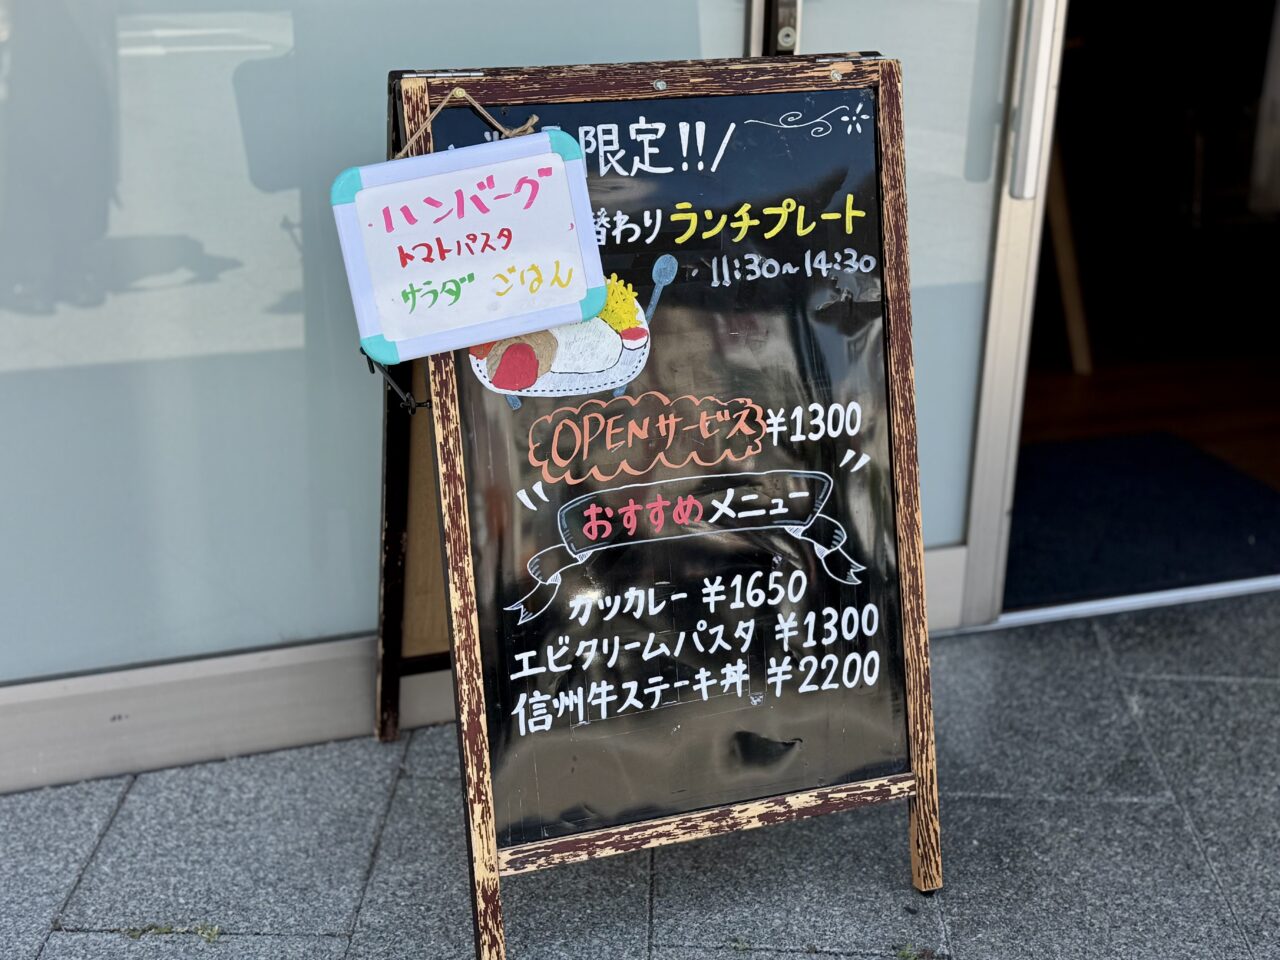 限定!!/
ハンバーグ
トマトパスタ
サラダ ごはん
替わりランチプレート
11:30~14:30
OPENサービス ¥1300
おすすめメニュー
カツカレー ¥1650
エビクリームパスタ ¥1300
信州牛ステーキ丼 ¥2200